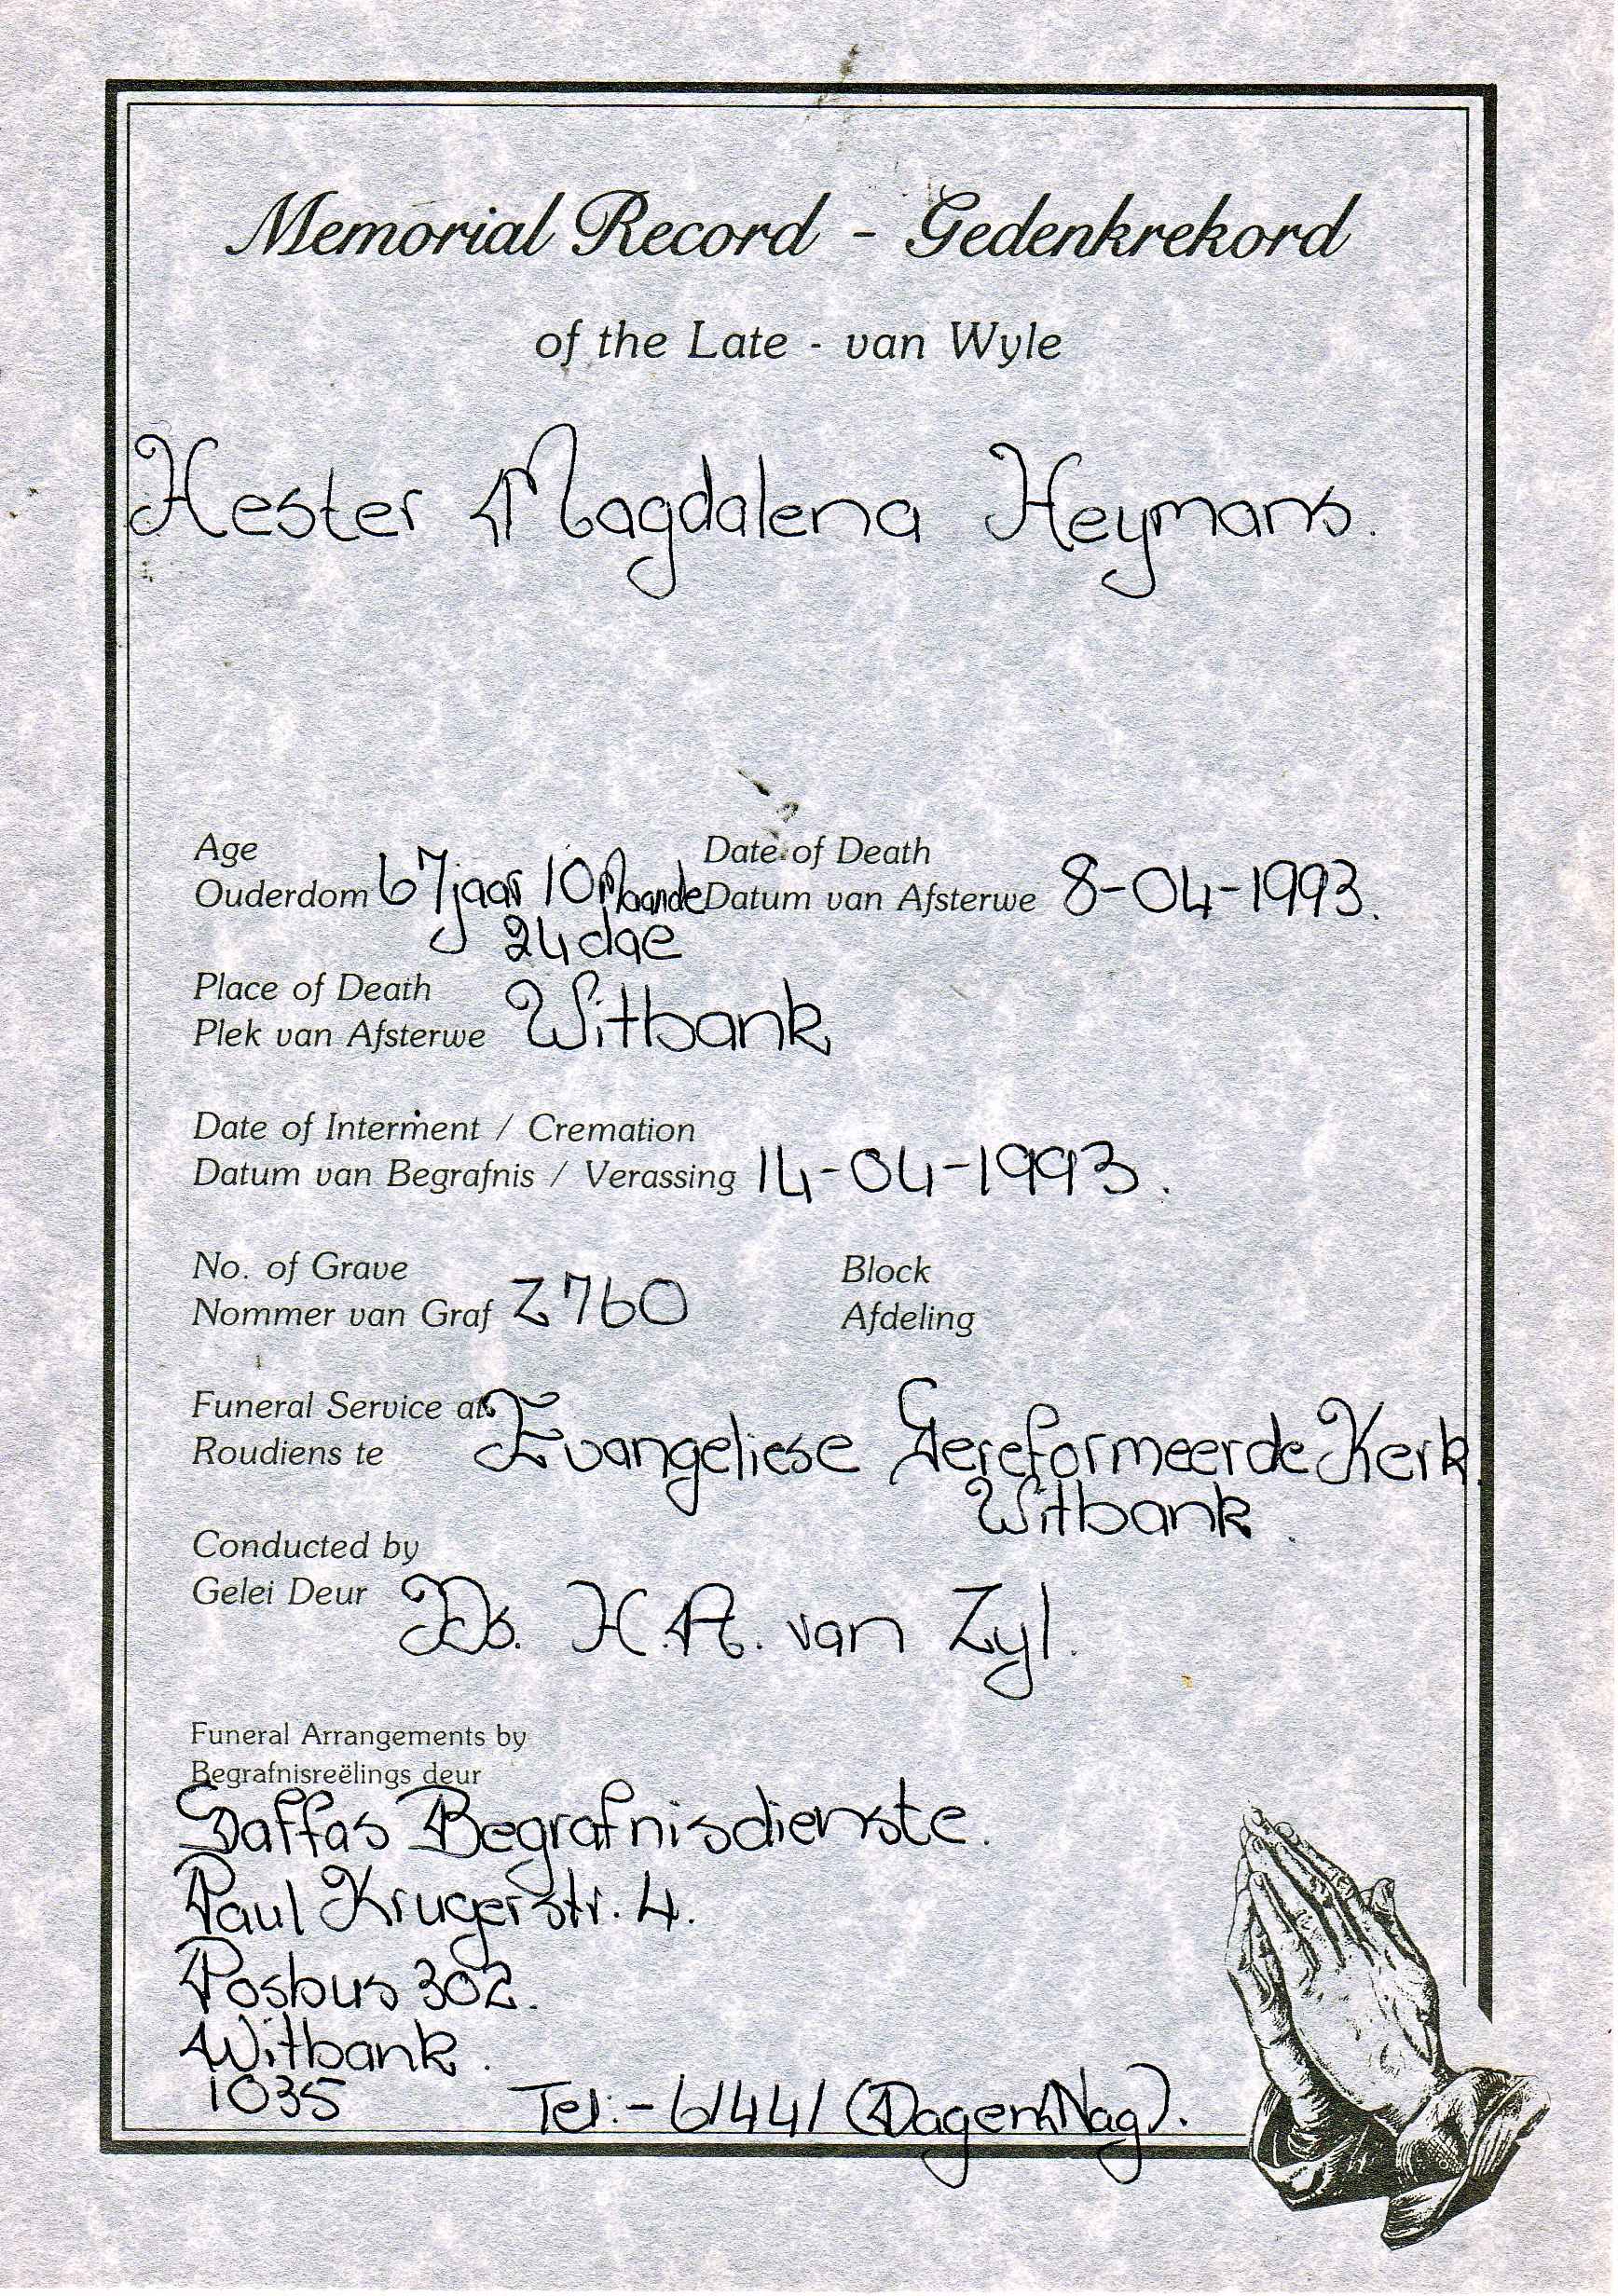 Memorial Record - Gedenkrekord
of the Late - van Wyle
Hester Magdalena Heymans.
Age
Ouderdom 67 jaar 10 Maande
24 dae
Date of Death
Datum van Afsterwe 8-04-1993.
Place of Death
Plek van Afsterwe Witbank
Date of Interment / Cremation
Datum van Begrafnis / Verassing 14-04-1993.
No. of Grave
Nommer van Graf Z760
Block
Afdeling
Funeral Service at
Roudiens te Evangeliese Gereformeerde Kerk.
Witbank.
Conducted by
Gelei Deur Ds. H.A. van Zyl.
Funeral Arrangements by
Begrafnisreëlings deur
Saffas Begrafnisdienste.
Paul Krugerstr. 4.
Posbus 302.
Witbank.
1035 Tel:- 61441 (Dag en Nag).